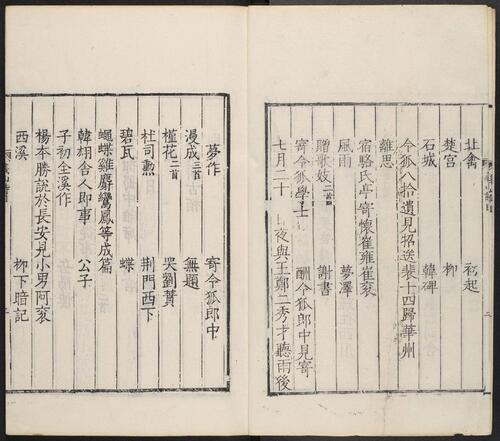 北禽　初起
楚宮　柳
石城　韓碑
令狐八拾遺見招送裴十四歸華州
離思
宿駱氏亭寄懷崔雍崔袞
風雨　夢澤
贈歌妓二首　謝書
寄令狐學士　酬令狐郎中見寄
七月二十　日夜與王鄭二秀才聽雨後
夢作　寄令狐郎中
漫成三首　無題
槿花二首　哭劉蕡
杜司勳　荆門西下
碧瓦　蝶
蠅蝶雞麝鸞鳳等成篇
韓翃舍人即事　公子
子初全溪作
楊本勝說於長安見小男阿袞
西溪　柳下暗記